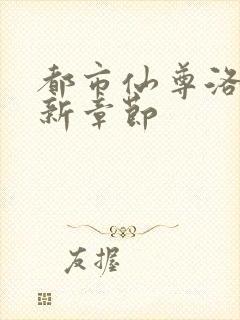 都市仙尊洛
新章节
友握